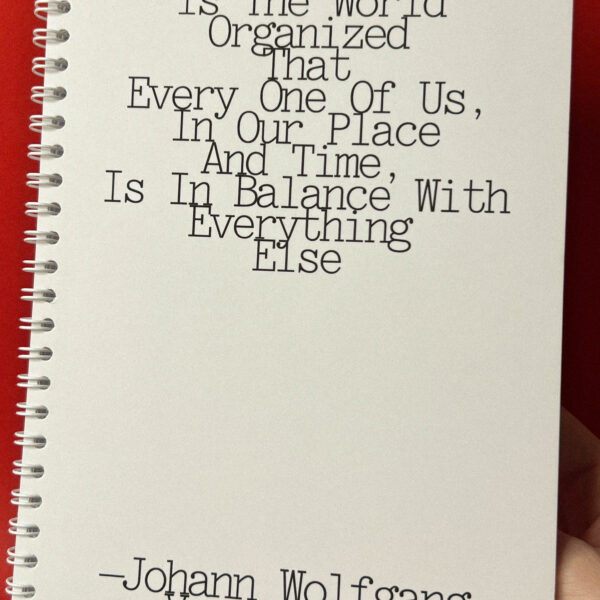 Is The World
Organized
That
Every One Of Us,
In Our Place
And Time,
Is In Balance With
Everything
Else
—Johann Wolfgang